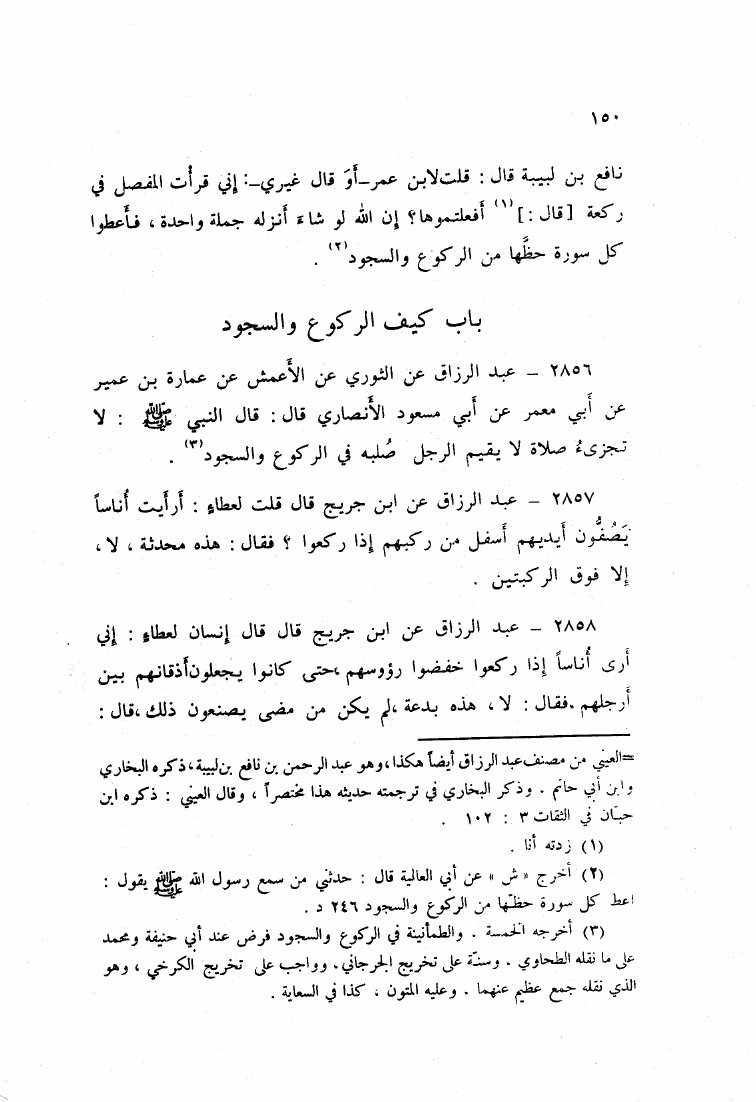 ١٥٠
نافع بن لبيبة قال : قلت لابن عمر -أَوَ قال غيري-: إني قرأت المفصل في
ركعة [قال :](١) أفعلتموها؟ إن الله لو شاءَ أنزله جملة واحدة ، فأَعطوا
كل سورة حظَّها من الركوع والسجود(٢) .
باب كيف الركوع والسجود
٢٨٥٦ - عبد الرزاق عن الثوري عن الأَعمش عن عمارة بن عمير
عن أَبي معمر عن أَبي مسعود الأَنصاري قال : قال النبي ﷺ : لا
تجزىءُ صلاة لا يقيم الرجل صُلبه في الركوع والسجود(٣) .
٢٨٥٧ - عبد الرزاق عن ابن جريج قال قلت لعطاءٍ : أَرأَيت أُناساً
يَصُفُّون أَيديهم أَسفل من ركبهم إذا ركعوا ؟ فقال : هذه محدثة ، لا ،
إلا فوق الركبتين .
٢٨٥٨ - عبد الرزاق عن ابن جريج قال قال إنسان لعطاءٍ : إني
أَرى أُناساً إذا ركعوا خفضوا رؤوسهم ،حتى كانوا يجعلون أَذقانهم بين
أَرجلهم .فقال : لا ، هذه بدعة ،لم يكن من مضى يصنعون ذلك ،قال :
=العيني من مصنف عبد الرزاق أيضاً هكذا،وهو عبد الرحمن بن نافع بن لبيبة،ذكره البخاري
وابن أبي حاتم . وذكر البخاري في ترجمته حديثه هذا مختصراً ، وقال العيني : ذكره ابن
حبّان في الثقات ٣ : ١٠٢ .
(١) زدته أنا .
(٢) أخرج « ش » عن أبي العالية قال : حدثني من سمع رسول الله ﷺ يقول :
اعط كل سورة حظّها من الركوع والسجود ٢٤٦ د .
(٣) أخرجه الخمسة . والطمأنينة في الركوع والسجود فرض عند أبي حنيفة ومحمد
على ما نقله الطحاوي . وسنّة على تخريج الجرجاني. وواجب على تخريج الكرخي ، وهو
الذي نقله جمع عظيم عنهما . وعليه المتون ، كذا في السعاية .